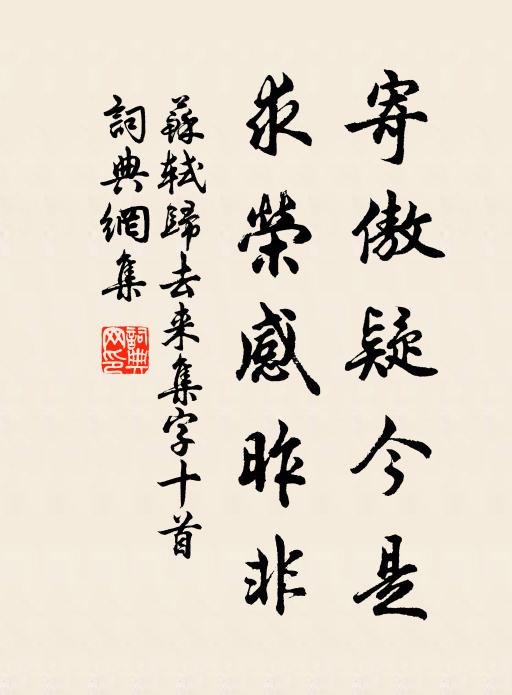 寄傲疑今是
求榮感昨非
蘇軾歸去来集字十首
詞典網集
詞典網印